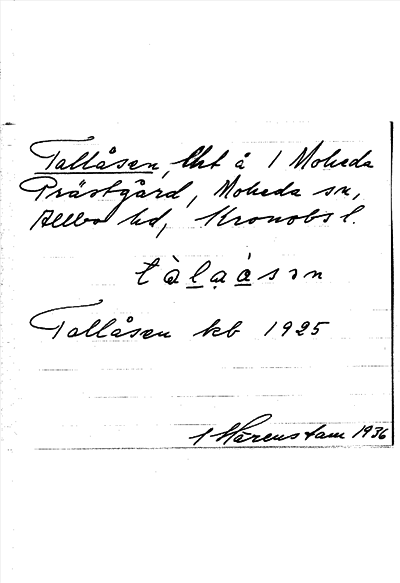 Tallåsen, lht å 1 Moheda
Prästgård, Moheda sn,
Allbo hd, Kronobs l.
tàlaàsən
Tallåsen kb 1925
Härenstam 1936